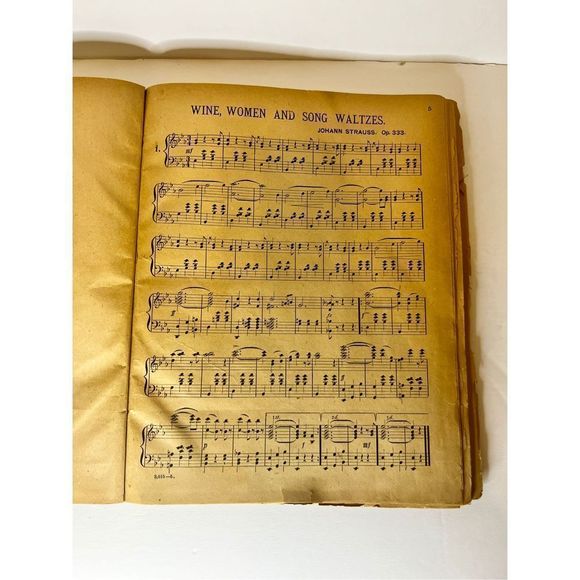 5
WINE, WOMEN AND SONG WALTZES.
JOHANN STRAUSS. Op. 333.
1.
mf
ff
f
p
1st.
2d.
mf
3d.
f